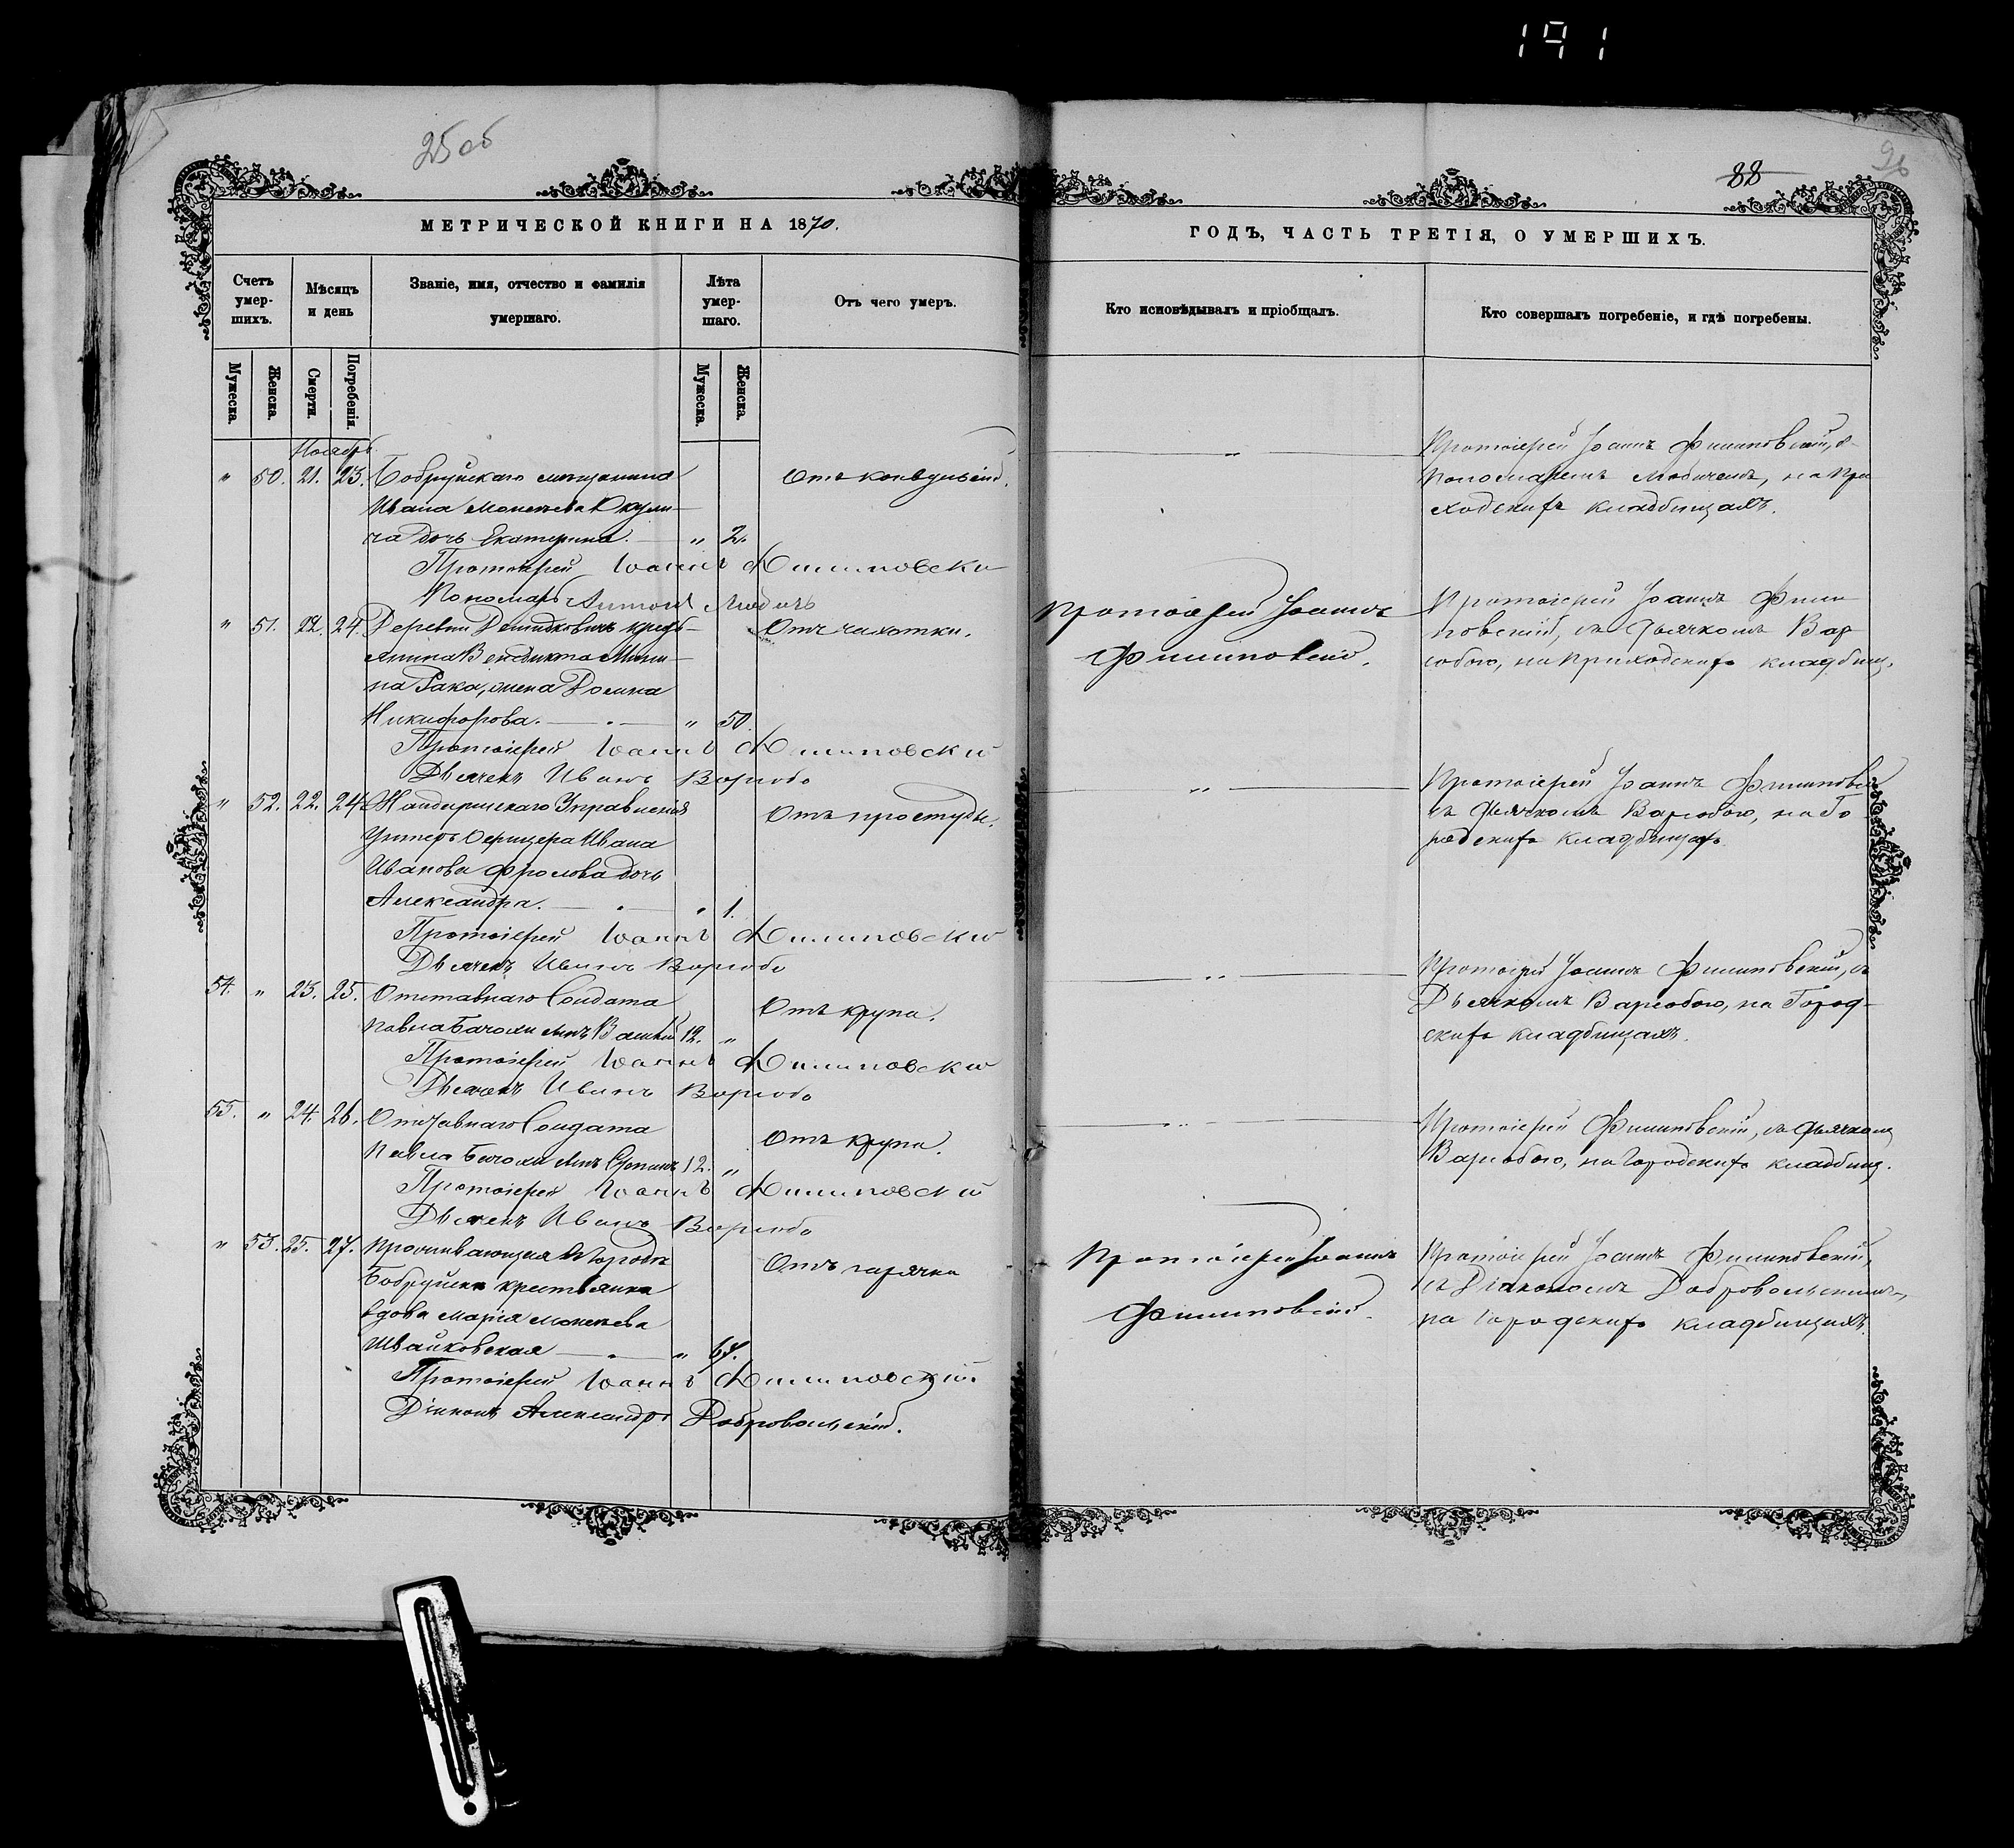 191
25 об
88
26
МЕТРИЧЕСКОЙ КНИГИ НА 1870.
ГОДЪ, ЧАСТЬ ТРЕТІЯ, О УМЕРШИХЪ.
Счетъ умер-шихъ.
Мѣсяцъ и день
Званіе, имя, отчество и фамилія умершаго.
Лѣта умер-шаго.
Отъ чего умеръ.
Кто исповѣдывалъ и пріобщалъ.
Кто совершалъ погребеніе, и гдѣ погребены.
Мужеска.
Женска.
Смерти.
Погребенія.
Мужеска.
Женска.
Ноябрь
" 50. 21. 23. Бобруйскаго мѣщанина
Ивана
ча дочь Екатерина. " 2.
Отъ конвульсій.
Протоіерей Іоаннъ Филиповскій
Пономарь Антоній
Протоіерей Іоаннъ Филиповскій, съ
Пономаремъ на При
ходскихъ кладбищахъ.
" 51. 22. 24. Деревни кресть-
янина Венедикта
жена
Никифорова. " 50.
Отъ чахотки.
Протоіерей Іоаннъ Филиповскій
Дьячекъ Иванъ
Протоіерей Іоаннъ
Филиповскій.
Протоіерей Іоаннъ Фили
повскій, съ Дьячкомъ
на Приходскихъ кладбищ.
" 52. 22. 24. Жандармскаго Управленія
Унтеръ Офицера Ивана
Иванова Фролова дочь
Александра. " 1.
Отъ простуды.
Протоіерей Іоаннъ Филиповскій
Дьячекъ Иванъ
Протоіерей Іоаннъ Филиповскій
съ Дьячкомъ на Го
родскихъ кладбищахъ.
54. " 23. 25. Отставнаго Солдата
Павла 12. "
Отъ крупа.
Протоіерей Іоаннъ Филиповскій
Дьячекъ Иванъ
Протоіерей Іоаннъ Филиповскій, съ
Дьячкомъ на Город-
скихъ кладбищахъ.
55. " 24. 26. Отставнаго Солдата
Павла 12. "
Отъ крупа.
Протоіерей Іоаннъ Филиповскій
Дьячекъ Иванъ
Протоіерей Филиповскій, съ Дьячкомъ
на Городскихъ кладбищ.
" 53. 25. 27. Проживающая въ Городѣ
Бобруйскѣ крестьянка
вдова Марія
Швайковская " 67.
Отъ горячки
Протоіерей Іоаннъ Филиповскій.
Діаконъ Александръ Добровольскій.
Протоіерей Іоаннъ
Филиповскій.
Протоіерей Іоаннъ Филиповскій,
съ Діакономъ Добровольскимъ,
на Городскихъ кладбищахъ.